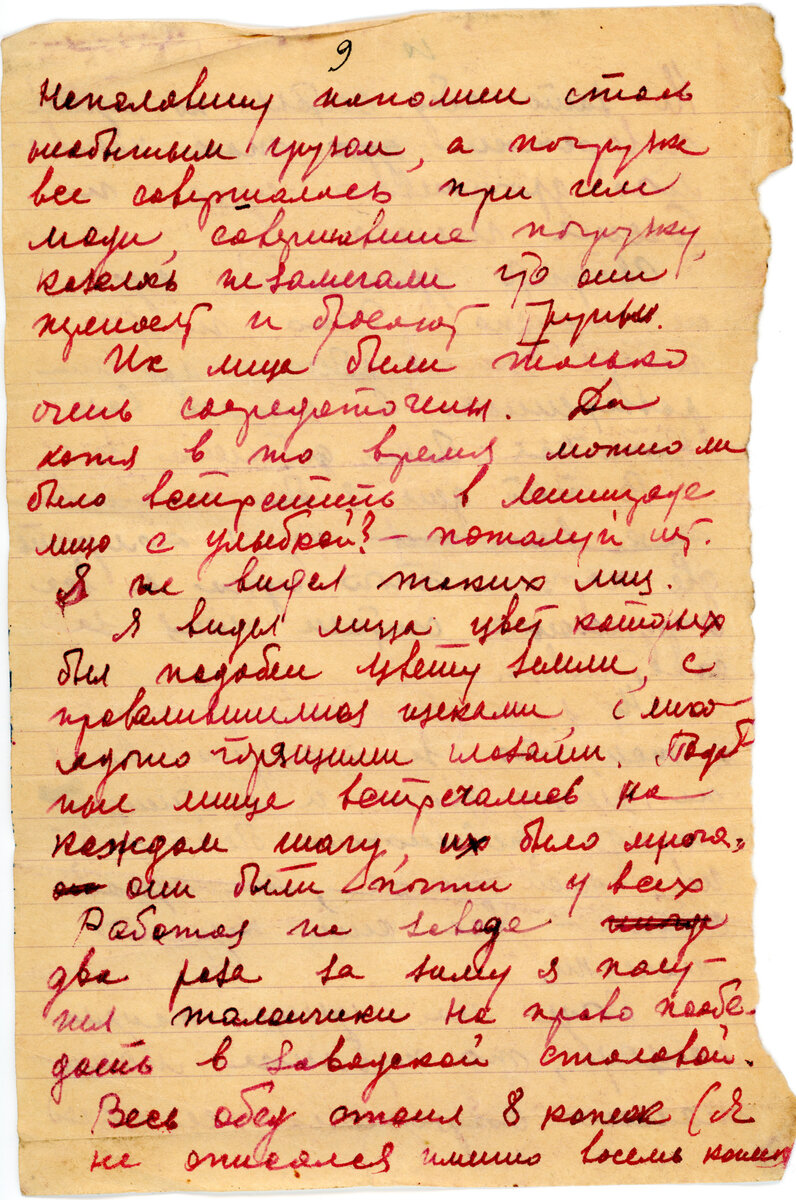 9
Наполовину наполнен столь
необычным грузом, а погрузка
все совершалась, при чем
люди, совершавшие погрузку,
казалось не замечали что они
приносят и бросают трупы.
Их лица были только
очень сосредоточены. Да
хотя в то время можно ли
было встретить в Ленинграде
лицо с улыбкой? – пожалуй нет.
Я не видел таких лиц.
Я видел лица цвет которых
был подобен цвету земли, с
провалившимися щеками, с лихо-
радочно горящими глазами. Подоб
ные лица встречались на
каждом шагу, их было много,
они были почти у всех
Работая на заводе
два раза за зиму я полу-
чил талончики на право пообе-
дать в заводской столовой.
Весь обед стоил 8 копеек (Я
не описался именно восемь копеек